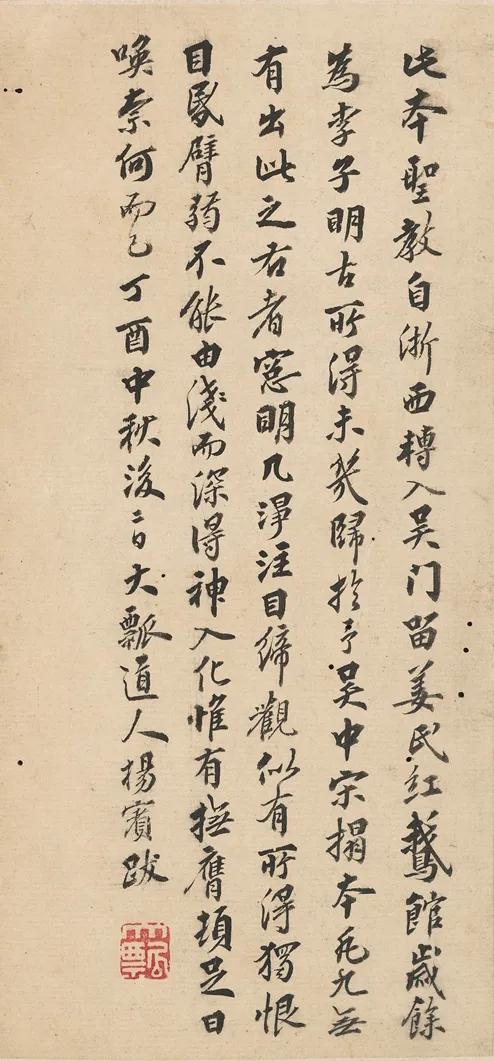 此本聖教自浙西轉入吳门留姜氏紅鵝館歲餘
為李子明古所得未幾歸扵予吳中宋搨本凡九無
有出此之右者窓明几淨注目締觀似有所得獨恨
目昬臂弱不能由淺而深得神入化惟有撫膺頓足日
喚奈何而已丁酉中秋後二日大瓢道人楊賓跋